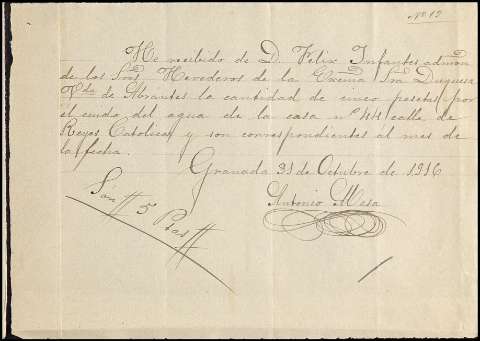 Nº 19
He recibido de D. Felix Infantes admon
de los Sres Herederos de la Excma Sra Duquesa
Vda de Abrantes la cantidad de cinco pesetas por
el cuido del agua de la casa nº 44 calle de
Reyes Catolicos y son correspondientes al mes de
la fecha.
Granada 31 de Octubre de 1916
Antonio Mesa
Son # 5 Ptas #